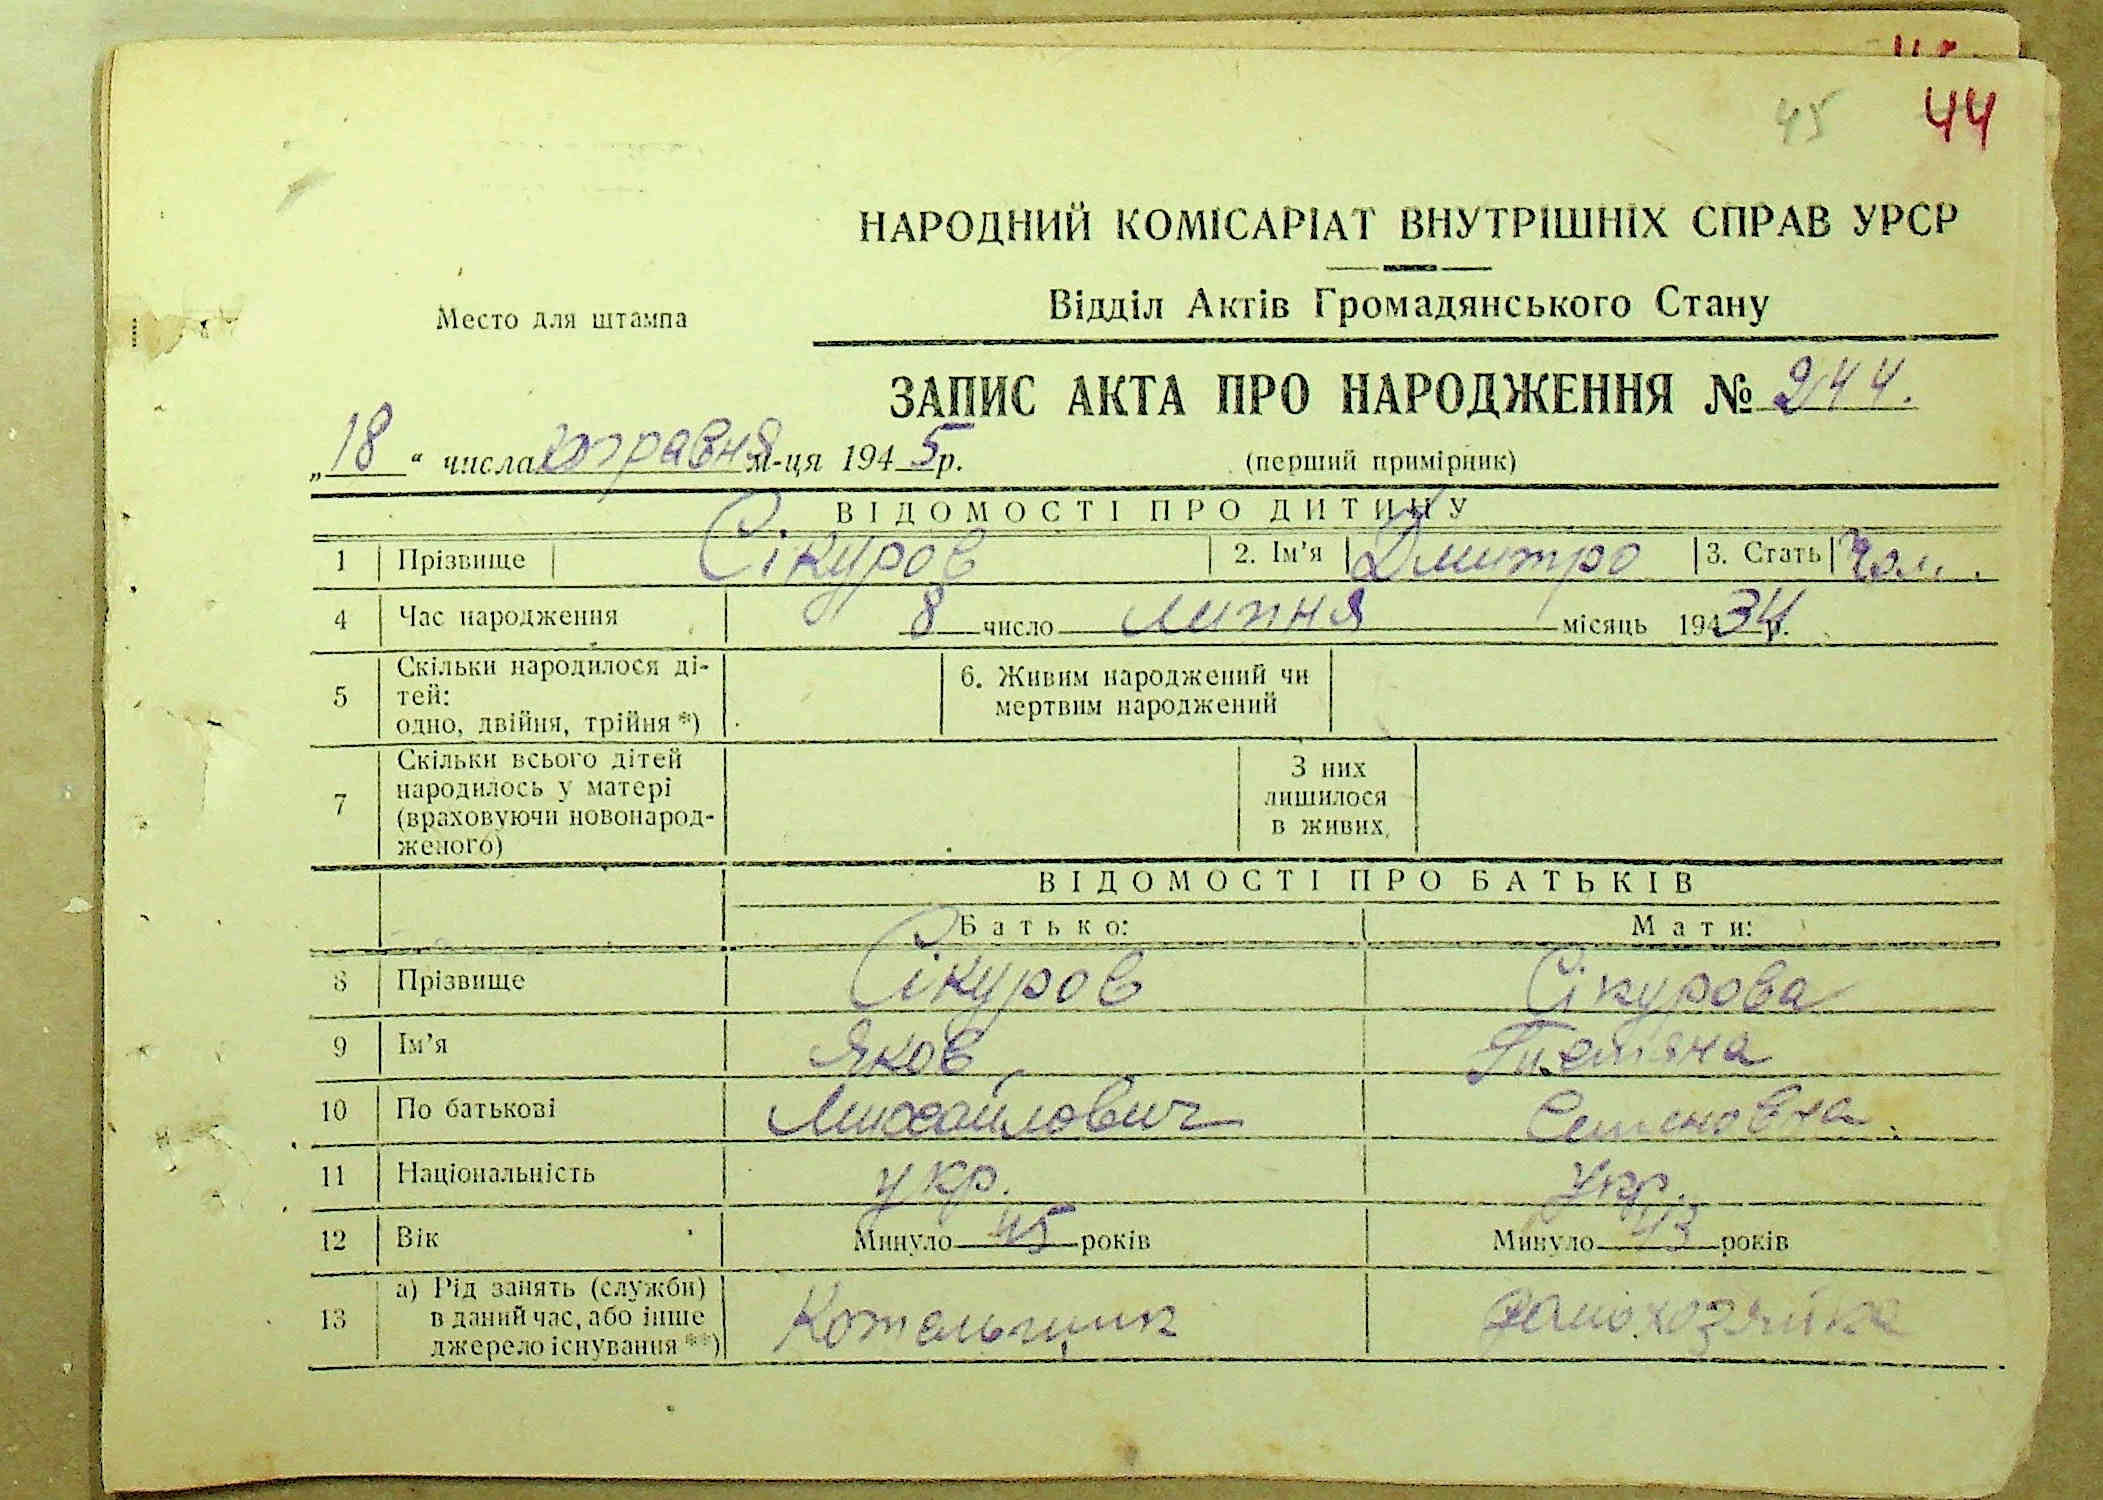 45 44
НАРОДНИЙ КОМІСАРІАТ ВНУТРІШНІХ СПРАВ УРСР
Відділ Актів Громадянського Стану
Место для штампа
ЗАПИС АКТА ПРО НАРОДЖЕННЯ № 244.
„18“ числа травня м-ця 1945 р.
(перший примірник)
ВІДОМОСТІ ПРО ДИТИНУ
1 Прізвище Сікуров 2. Ім'я Дмитро 3. Стать Чол.
4 Час народження 8 число липня місяць 19434 р.
5 Скільки народилося ді-
тей:
одно, двійня, трійня *)
6. Живим народжений чи
мертвим народжений
7 Скільки всього дітей
народилось у матері
(враховуючи новонарод-
женого)
З них
лишилося
в живих
ВІДОМОСТІ ПРО БАТЬКІВ
Батько: Мати:
8 Прізвище Сікуров Сікурова
9 Ім'я Яков Тетяна
10 По батькові Михайлович Семеновна
11 Національність укр. Укр.
12 Вік Минуло 45 років Минуло 43 років
13 а) Рід занять (служби)
в даний час, або інше
джерело існування **)
Котельщик домохозяйка